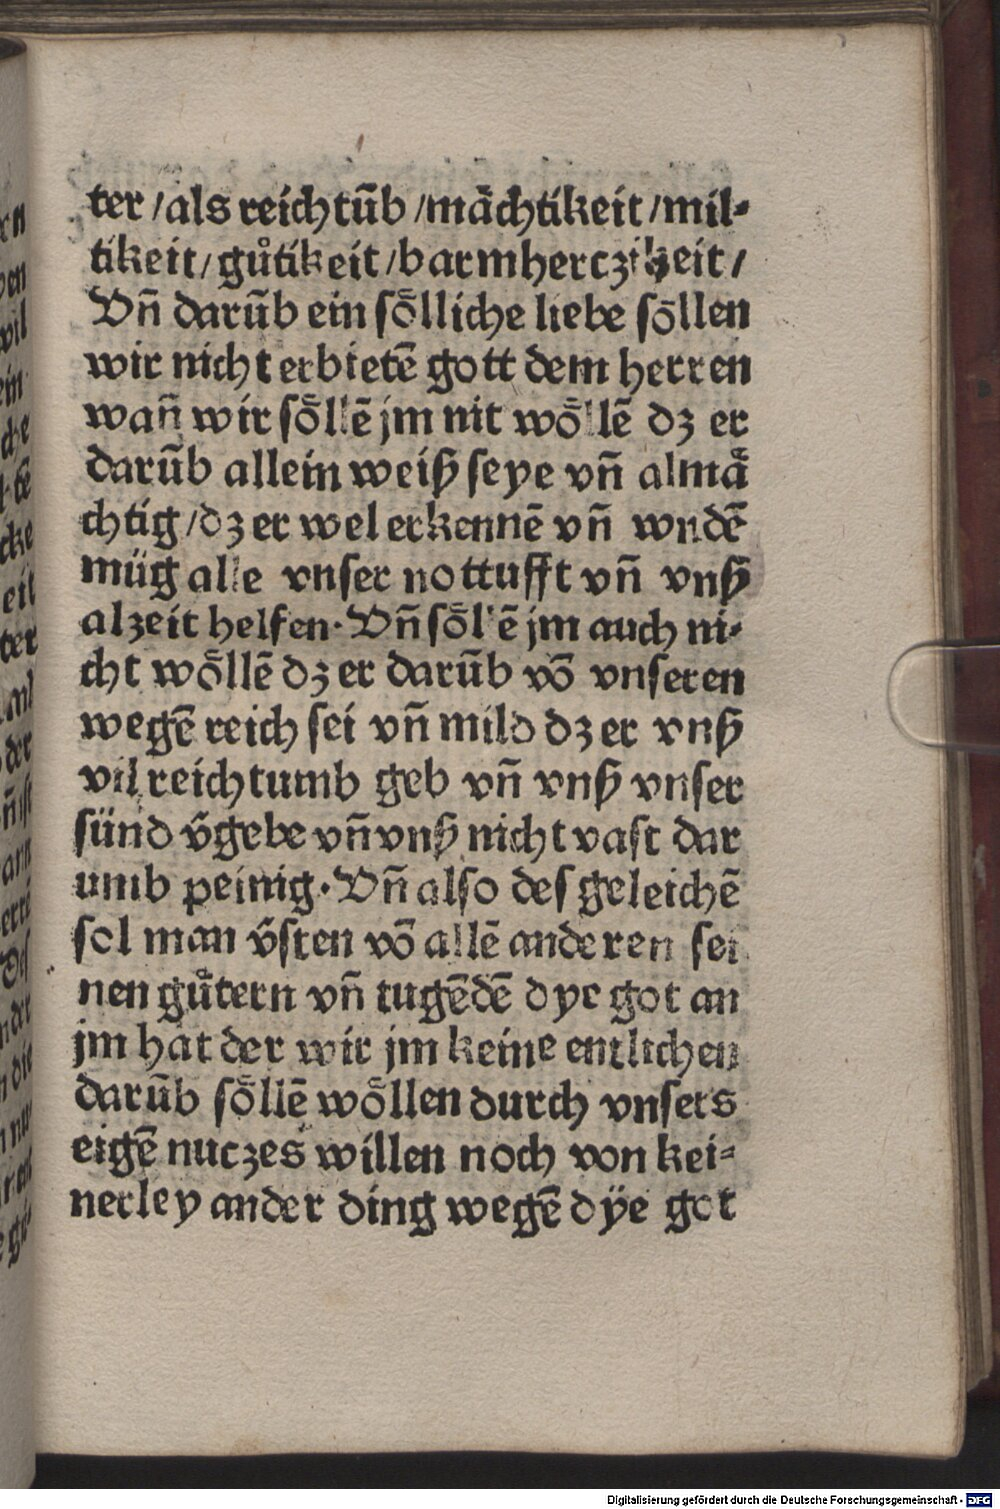 ter /als reichtūb /mächtikeit /mil⸗
tikeit/ gůtikeit /barmherczikeit /
Vñ darūb ein sőlliche liebe sőllen
wir nicht erbietē gott dem herren
wañ wir sőllē jm nit wőllē dz er
darūb allein weiß seye vñ almä
chtig /dz er wel erkennē vñ wndē
müg alle vnser nottufft vñ vnß
alzeit helfen· Vñ sőllē jm auch ni⸗
cht wőllē dz er darūb vō vnseren
wegē reich sei vñ mild dz er vnß
vil reichtumb geb vñ vnß vnser
sünd v̄gebe vñ vnß nicht vast dar
umb peinig· Vñ also des geleichē
sol man v̄sten vō allē anderen sei
nen gůtern vñ tugēdē dye got an
jm hat der wir jm keine entlichen
darūb sőllē wőllen durch vnsers
eigē nuczes willen noch von kei⸗
nerley ander ding wegē dÿe got
Digitalisierung gefördert durch die Deutsche Forschungsgemeinschaft - DFG